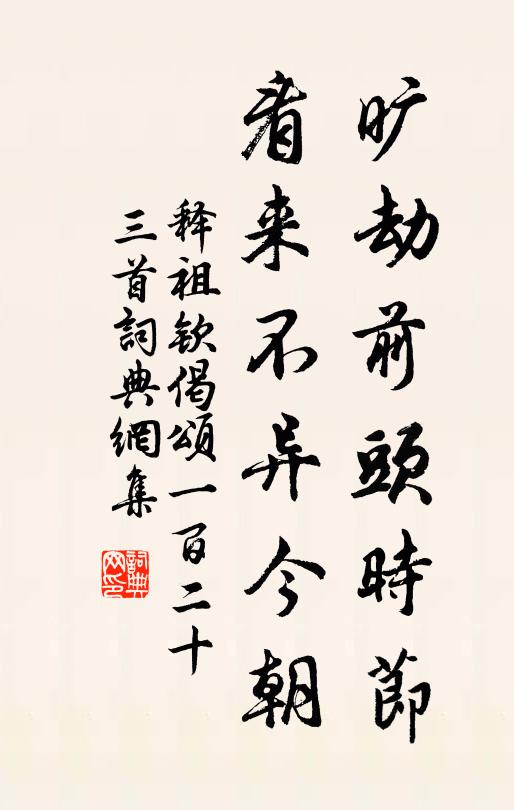 旷劫前頭時節
看来不异今朝
释祖钦偈頌一百二十
三首詞典網集
詞典网印